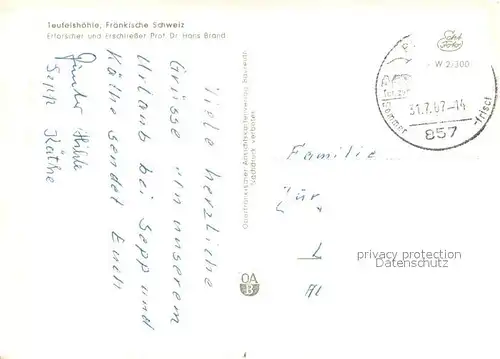 Teufelshöhle, Fränkische Schweiz
Erforscher und Erschließer Prof. Dr. Hans Brand
Viele herzliche
Grüsse "In unserem
Urlaub bei Sepp und
Käthe sendet Euch
Sepp Käthe
Oberfränkischer Ansichtskartenverlag Bayreuth
Nachdruck verboten
OA
B
Echt
Foto
W 2/300
31.7.67-14
Sommer
857
Familie
privacy protection
Datenschutz